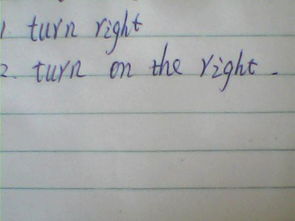 1. turn right
2. turn on the right.